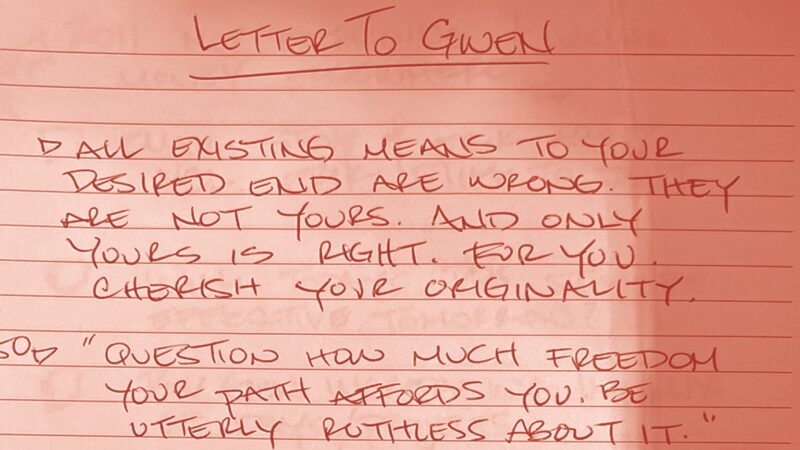 LETTER TO GWEN
▷ ALL EXISTING MEANS TO YOUR
DESIRED END ARE WRONG. THEY
ARE NOT YOURS. AND ONLY
YOURS IS RIGHT. FOR YOU.
CHERISH YOUR ORIGINALITY.
SO▷ "QUESTION HOW MUCH FREEDOM
YOUR PATH AFFORDS YOU. BE
UTTERLY RUTHLESS ABOUT IT."